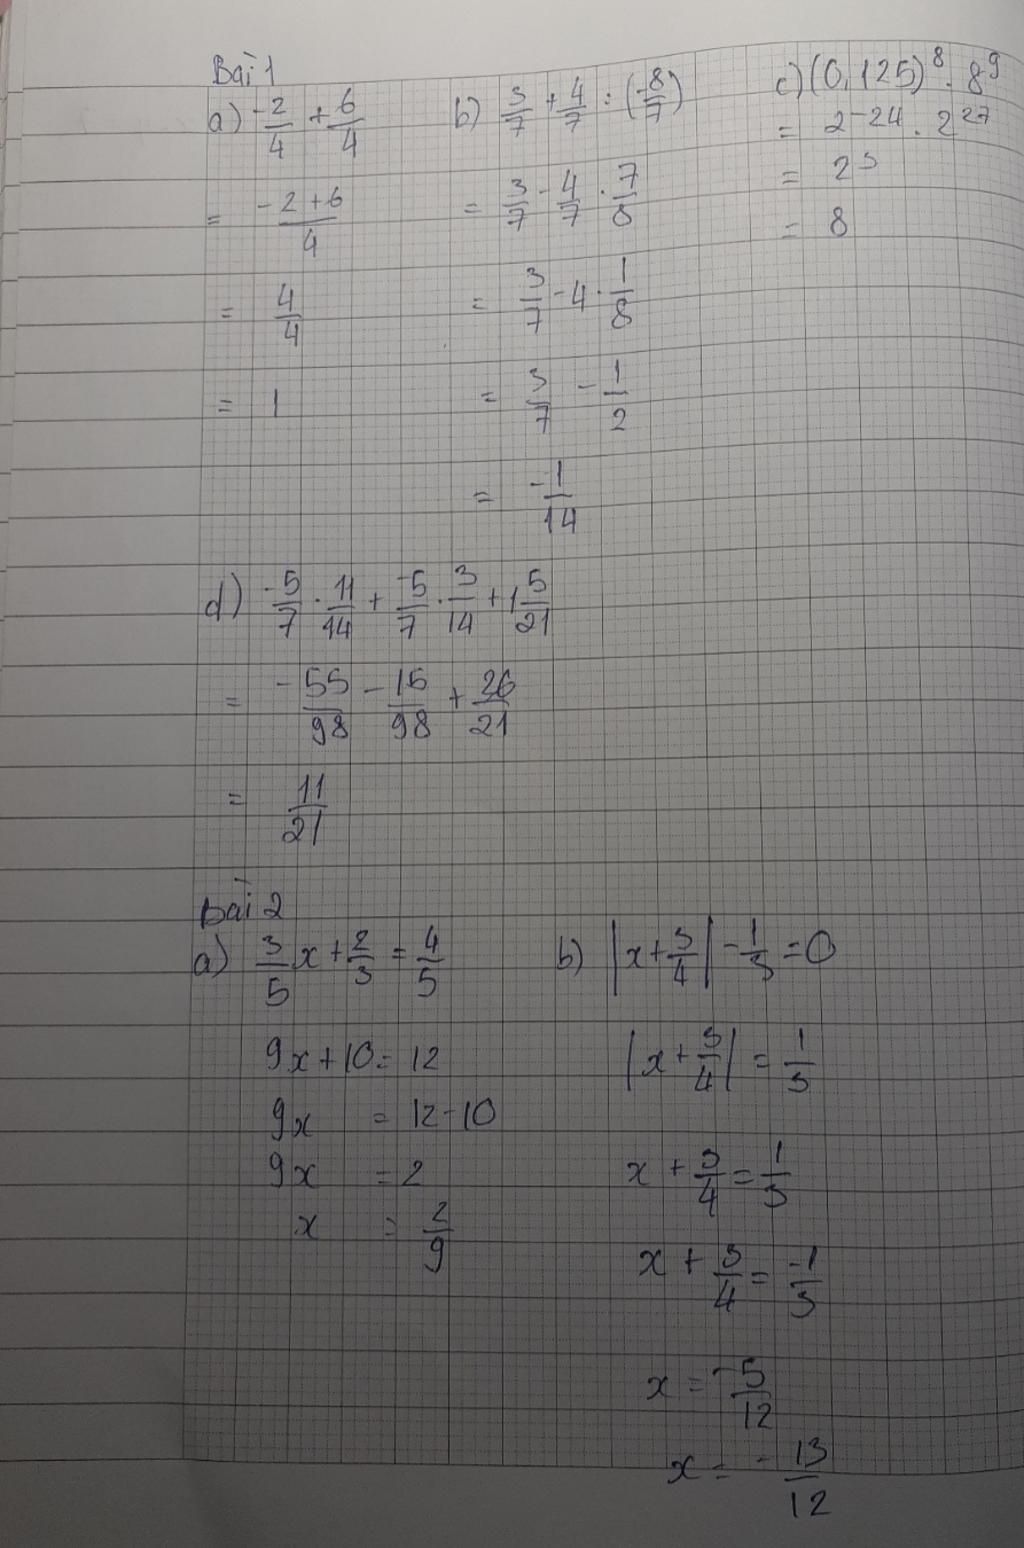 Bài 1
a) -2/4 + 6/4
= -2+6/4
= 4/4
= 1
b) 3/7 + 4/7 : (-8/7)
= 3/7 - 4/7 . 7/8
= 3/7 - 4 . 1/8
= 3/7 - 1/2
= -1/14
c) (0,125)⁸ . 8⁹
= 2⁻²⁴ . 2²⁷
= 2³
= 8
d) -5/7 . 11/14 + -5/7 . 3/14 + 1 5/21
= -55/98 - 15/98 + 26/21
= 11/21
Bài 2
a) 3/5 x + 2/3 = 4/5
9x + 10 = 12
9x = 12 - 10
9x = 2
x = 2/9
b) |x + 3/4| - 1/3 = 0
|x + 3/4| = 1/3
x + 3/4 = 1/3
x + 3/4 = -1/3
x = -5/12
x = -13/12